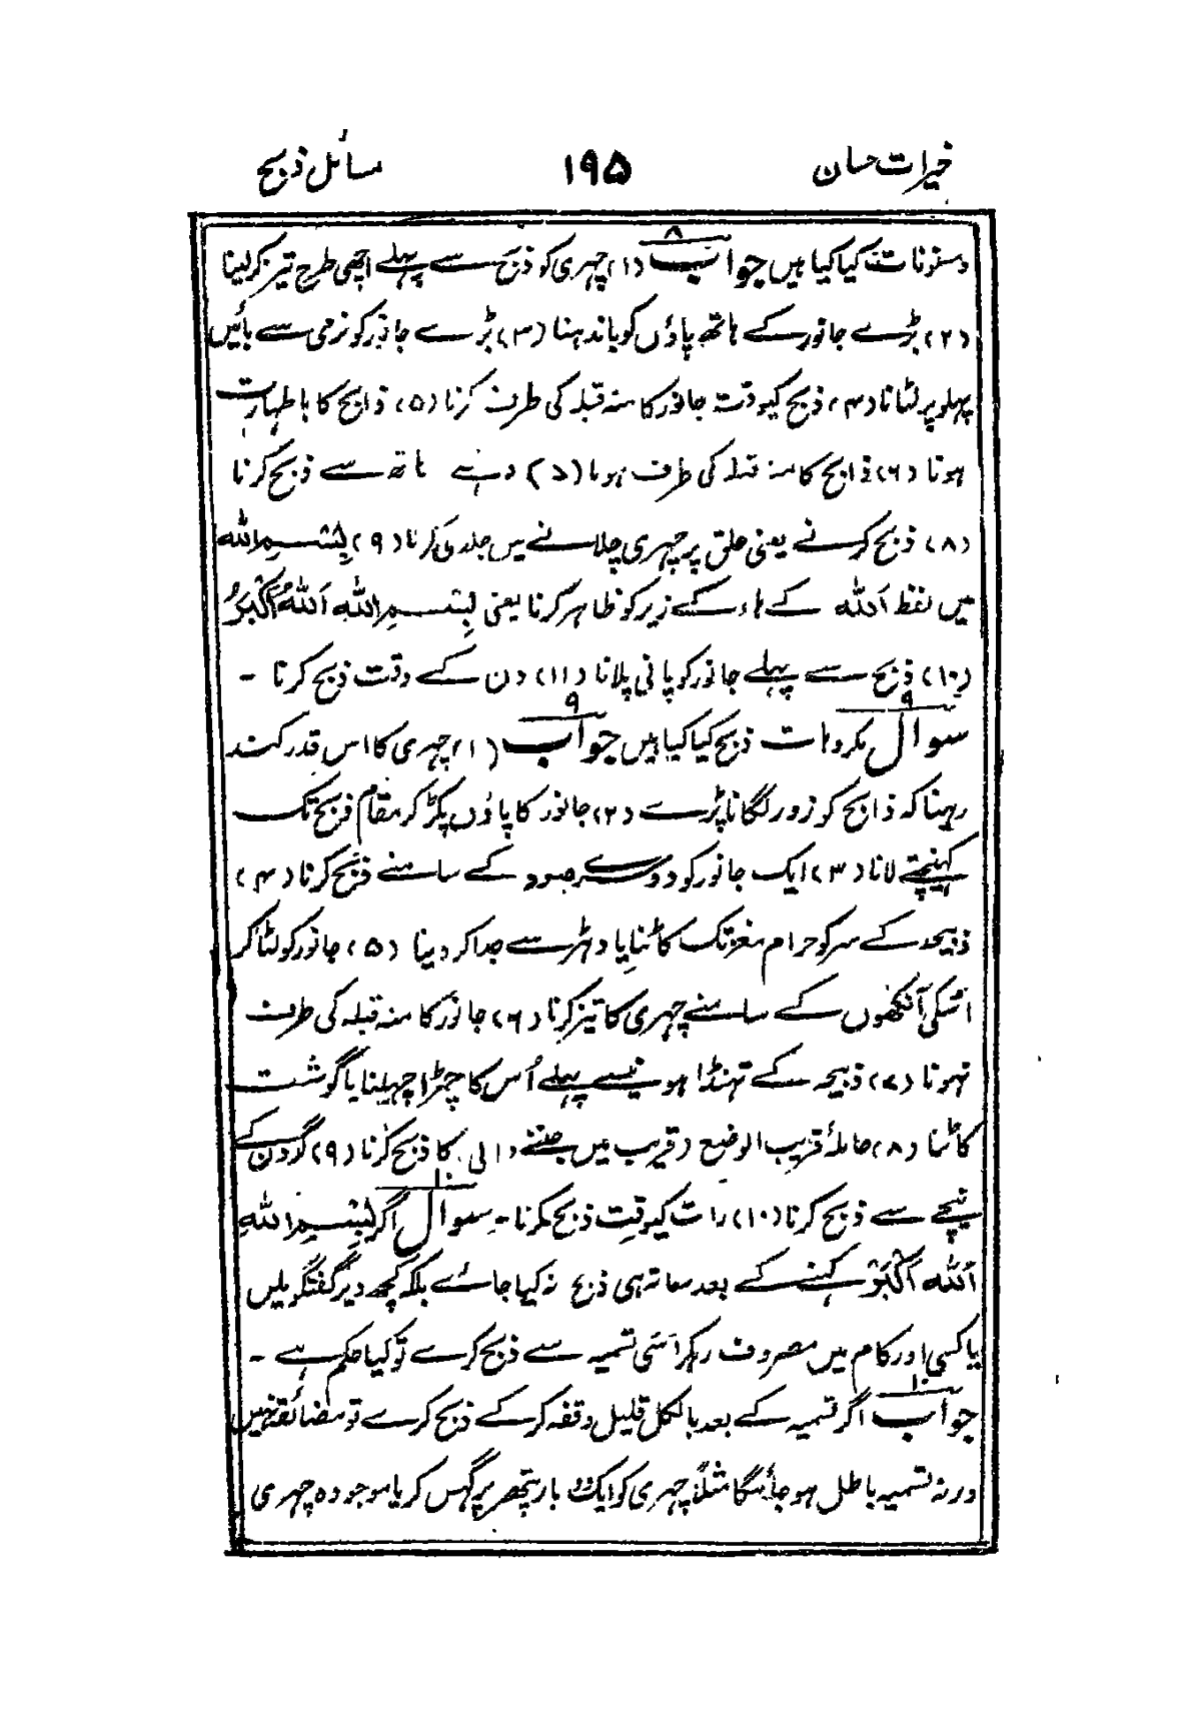 خیرات حسان ۱۹۵ مسائل ذبح
ومسنونات کیا کیا ہیں جواب ۸ (۱) چہری کو ذبح سے پہلے اچھی طرح تیز کرلینا
(۲) بڑے جانور کے ہاتھ پاؤں کو باندہنا (۳) بڑے جانور کو نرمی سے بائیں
پہلو پر لٹانا (۴) ذبح کیوقت جانور کا منہ قبلہ کی طرف کرنا (۵) ذابح کا باطہارت
ہونا (۶) ذابح کا منہ قبلہ کی طرف ہونا (۷) دہنے ہاتھ سے ذبح کرنا
(۸) ذبح کرنے یعنی حلق پر چہری چلانے میں جلدی کرنا (۹) بِسْمِ اللہ
میں لفظ اَللہ کے ہاء کے زیر کو ظاہر کرنا یعنی بِسْمِ اللہِ اَللہُ اَکْبَرُ
(۱۰) ذبح سے پہلے جانور کو پانی پلانا (۱۱) دن کے وقت ذبح کرنا ۔
سوال ۹ مکروہات ذبح کیا کیا ہیں جواب ۹ (۱) چہری کا اس قدر کند
رہنا کہ ذابح کو زور لگانا پڑے (۲) جانور کا پاؤں پکڑ کر مقام ذبح تک
کہینچتے لانا (۳) ایک جانور کو دوسرے کے سامنے ذبح کرنا (۴)
ذبیحہ کے سر کو حرام مغز تک کاٹنا یا دہڑ سے جدا کر دینا (۵) جانور کو لٹا کر
اسکی آنکھوں کے سامنے چہری کا تیز کرنا (۶) جانور کا منہ قبلہ کی طرف
نہونا (۷) ذبیحہ کے تہنڈا ہونیسے پہلے اُس کا چمڑا چہیلنا یا گوشت
کاٹنا (۸) حاملۂ قریب الوضع (قریب میں جننے والی) کا ذبح کرنا (۹) گردن کے
نیچے سے ذبح کرنا (۱۰) رات کیوقت ذبح کرنا ۔ سوال ۱۰ اگر بِسْمِ اللہِ
اَللہُ اَکْبَرْ کہنے کے بعد ساتہ ہی ذبح نہ کیا جائے بلکہ کچھ دیر گفتگو میں
یا کسی اور کام میں مصروف رہکر اسی تسمیہ سے ذبح کرے تو کیا حکم ہے ۔
جواب ۱۰ اگر تسمیہ کے بعد بالکل قلیل وقفہ کر کے ذبح کرے تو مضائقہ نہیں
ورنہ تسمیہ باطل ہو جائیگا مثلاً چہری کو ایک بار پتھر پر گہس کر یا موجودہ چہری